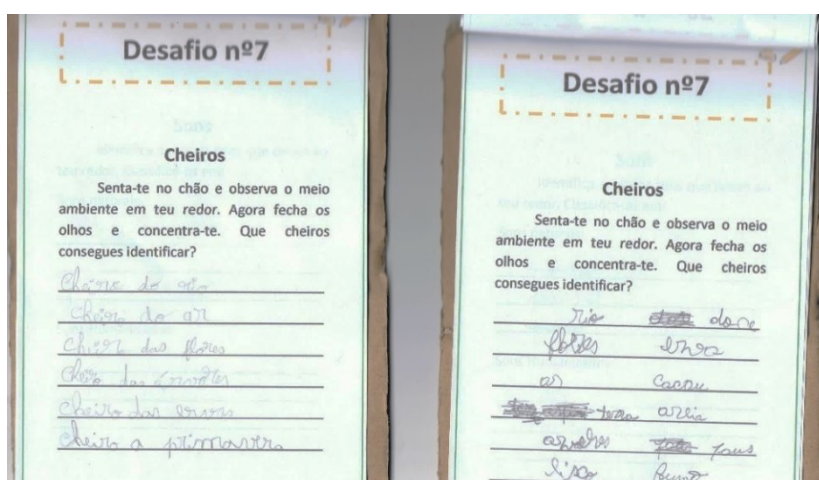 Desafio nº7
Cheiros
Senta-te no chão e observa o meio
ambiente em teu redor. Agora fecha os
olhos e concentra-te. Que cheiros
consegues identificar?
do
Cheiro do ar
Cheiro das flores
Cheiro das
Cheiro das ervas
cheiro a primavera
Desafio nº7
Cheiros
Senta-te no chão e observa o meio
ambiente em teu redor. Agora fecha os
olhos e concentra-te. Que cheiros
consegues identificar?
rio doce
flores erva
ar
terra areia
arvores
lixo